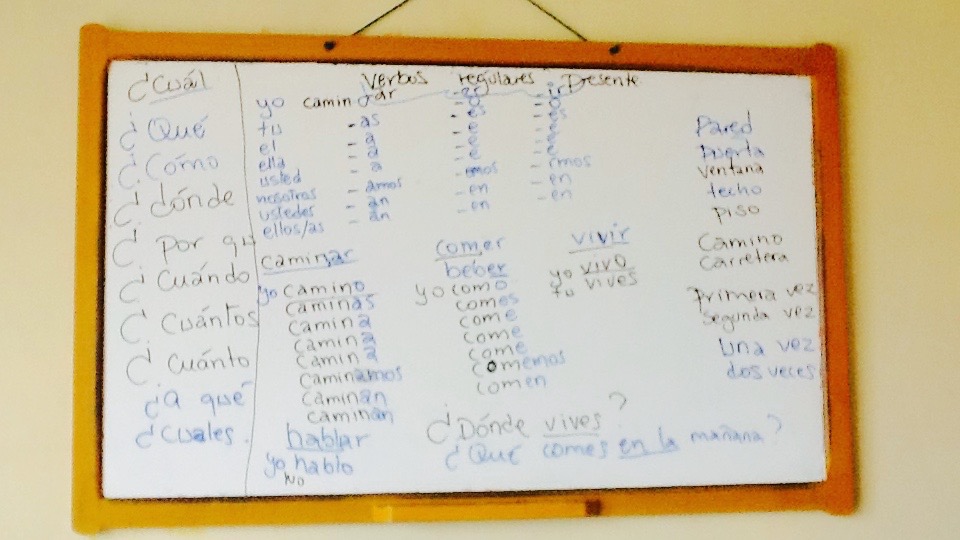 ¿Cuál
¿Qué
¿Cómo
¿dónde
¿Por qu
¿Cuándo
¿Cuántos
¿Cuánto
¿A qué
¿Cuales
Verbos regulares Presente
-ar -er -ir
yo camin o -o -o
tu -as -es -es
el -a -e -e
ella -a -e -e
usted -a -e -e
nosotros -amos -emos -imos
ustedes -an -en -en
ellos/as -an -en -en
caminar
yo camino
caminas
camina
camina
camina
caminamos
caminan
caminan
hablar
yo hablo
No
comer
beber
yo como
comes
come
come
come
comemos
comen
vivir
yo vivo
tu vives
¿Dónde vives?
¿Qué comes en la mañana?
Pared
Puerta
ventana
techo
piso
Camino
Carretera
Primera vez
Segunda vez
Una vez
dos veces